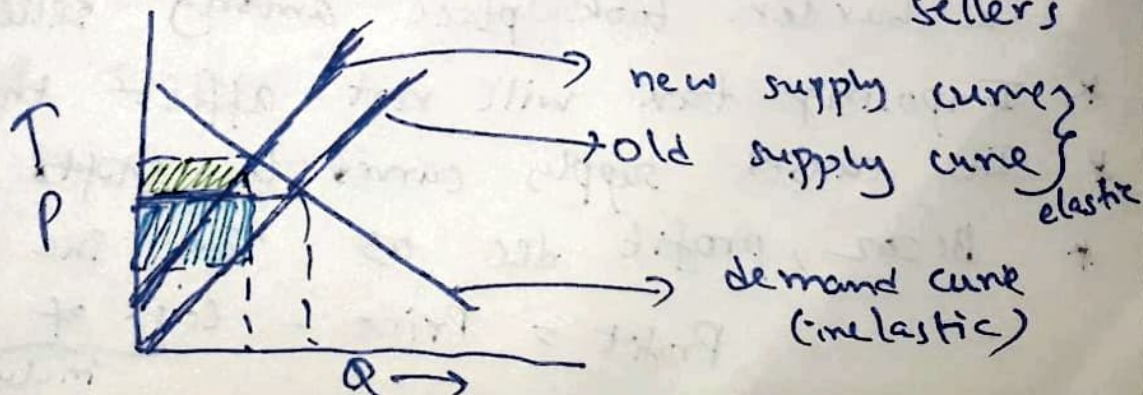 sellers
new supply curve
old supply curve
elastic
T
P
demand curve
(inelastic)
Q